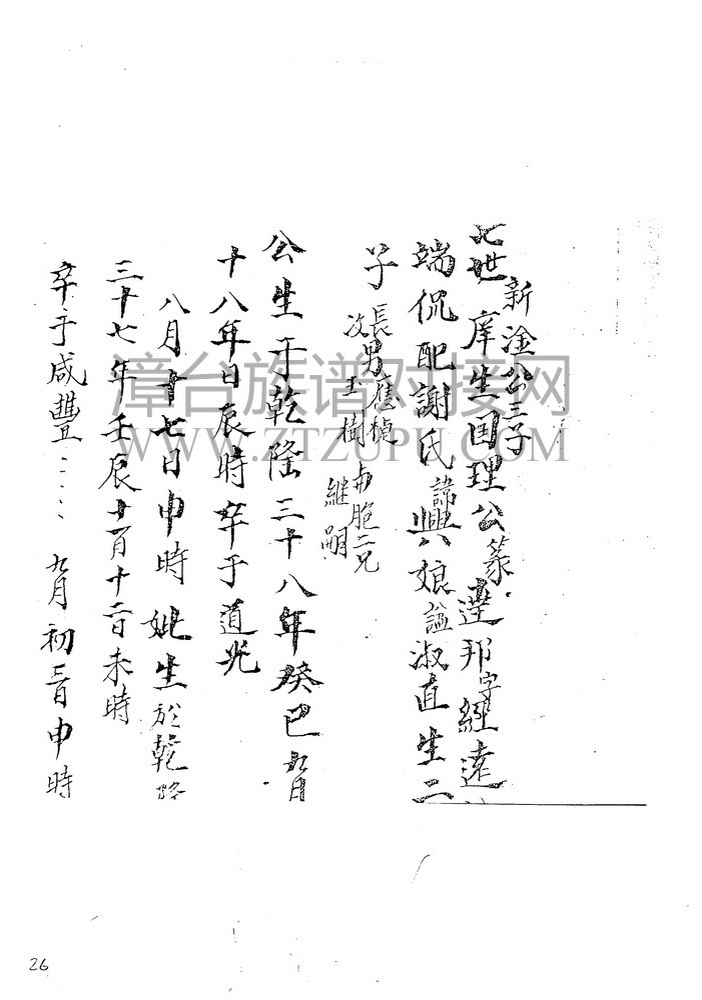 新淦公三子
七世 庠生國理公篆達邦字經遠
端侃配謝氏諱興娘謚淑直生二
子 長男應楨
次 玉樹 与胞二兄
継嗣
公生于乾隆三十八年癸巳九月
十八年日辰時卒于道光
八月十七日申時 妣生於乾隆
三十七年壬辰十一月十二日未時
卒于咸豐…… 九月初三日申時
漳台族谱对接网
WWW.ZTZUPU.COM
26